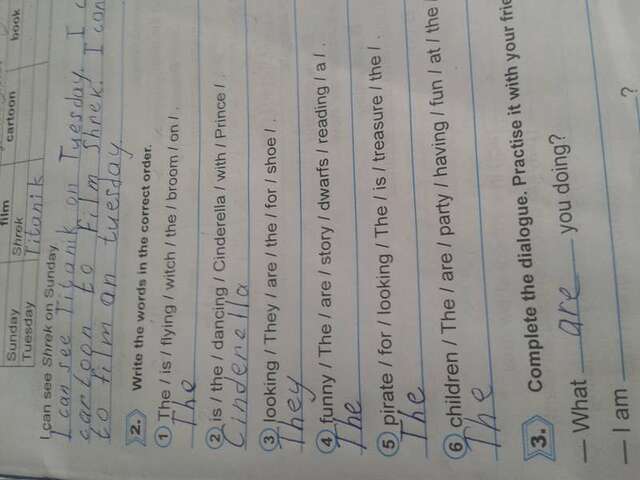 film cartoon book
Sunday Shrek
Tuesday Titanik
I can see Shrek on Sunday
I can see Titanik on Tuesday. I c
cartoon to film Shrek. I can
to film an tuesday
2. Write the words in the correct order.
1 The / is / flying / witch / the / broom / on / .
The
2 is / the / dancing / Cinderella / with / Prince / .
Cinderella
3 looking / They / are / the / for / shoe / .
They
4 funny / The / are / story / dwarfs / reading / a / .
The
5 pirate / for / looking / The / is / treasure / the / .
The
6 children / The / are / party / having / fun / at / the /
The
3. Complete the dialogue. Practise it with your frie
— What are you doing?
— I am ?